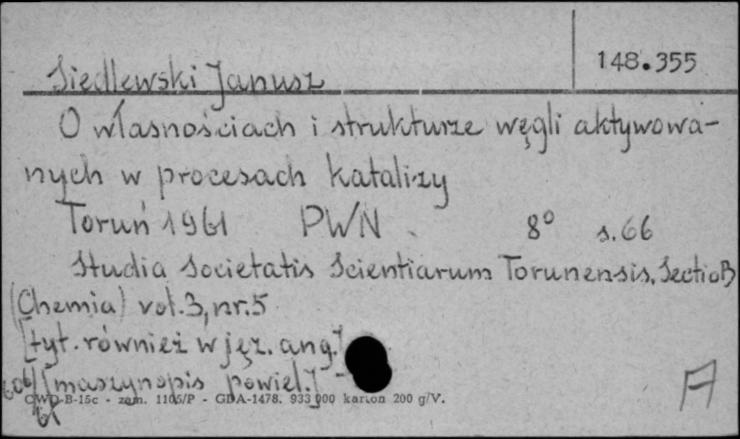 148.355
Siedlewski Janusz
O własnościach i strukturze węgli aktywowa-
nych w procesach katalizy
Toruń 1961 PWN. 8° s. 66
Studia Societatis Scientiarum Torunensis. Sectio B
(Chemia) vol. 3, nr. 5
[tyt. również w jęz. ang.]
[maszynopis powiel.] -
CWD-B-15c - zam. 1105/P - GDA-1478. 933 000 karton 200 g/V.
A